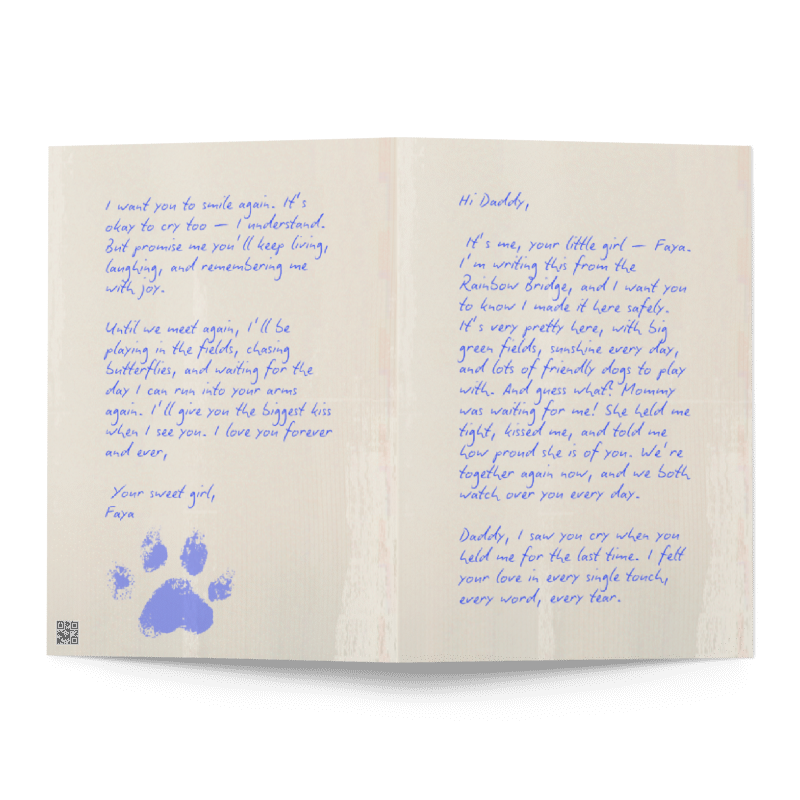 Hi Daddy,
It's me, your little girl — Faya.
I'm writing this from the
Rainbow Bridge, and I want you
to know I made it here safely.
It's very pretty here, with big
green fields, sunshine every day,
and lots of friendly dogs to play
with. And guess what? Mommy
was waiting for me! She held me
tight, kissed me, and told me
how proud she is of you. We're
together again now, and we both
watch over you every day.
Daddy, I saw you cry when you
held me for the last time. I felt
your love in every single touch,
every word, every tear.
I want you to smile again. It's
okay to cry too — I understand.
But promise me you'll keep living,
laughing, and remembering me
with joy.
Until we meet again, I'll be
playing in the fields, chasing
butterflies, and waiting for the
day I can run into your arms
again. I'll give you the biggest kiss
when I see you. I love you forever
and ever,
Your sweet girl,
Faya